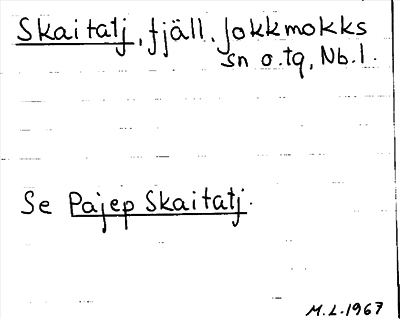 Skaitatj, fjäll. Jokkmokks
sn o. tg, Nb. l.
Se Pajep Skaitatj.
M.L.1967